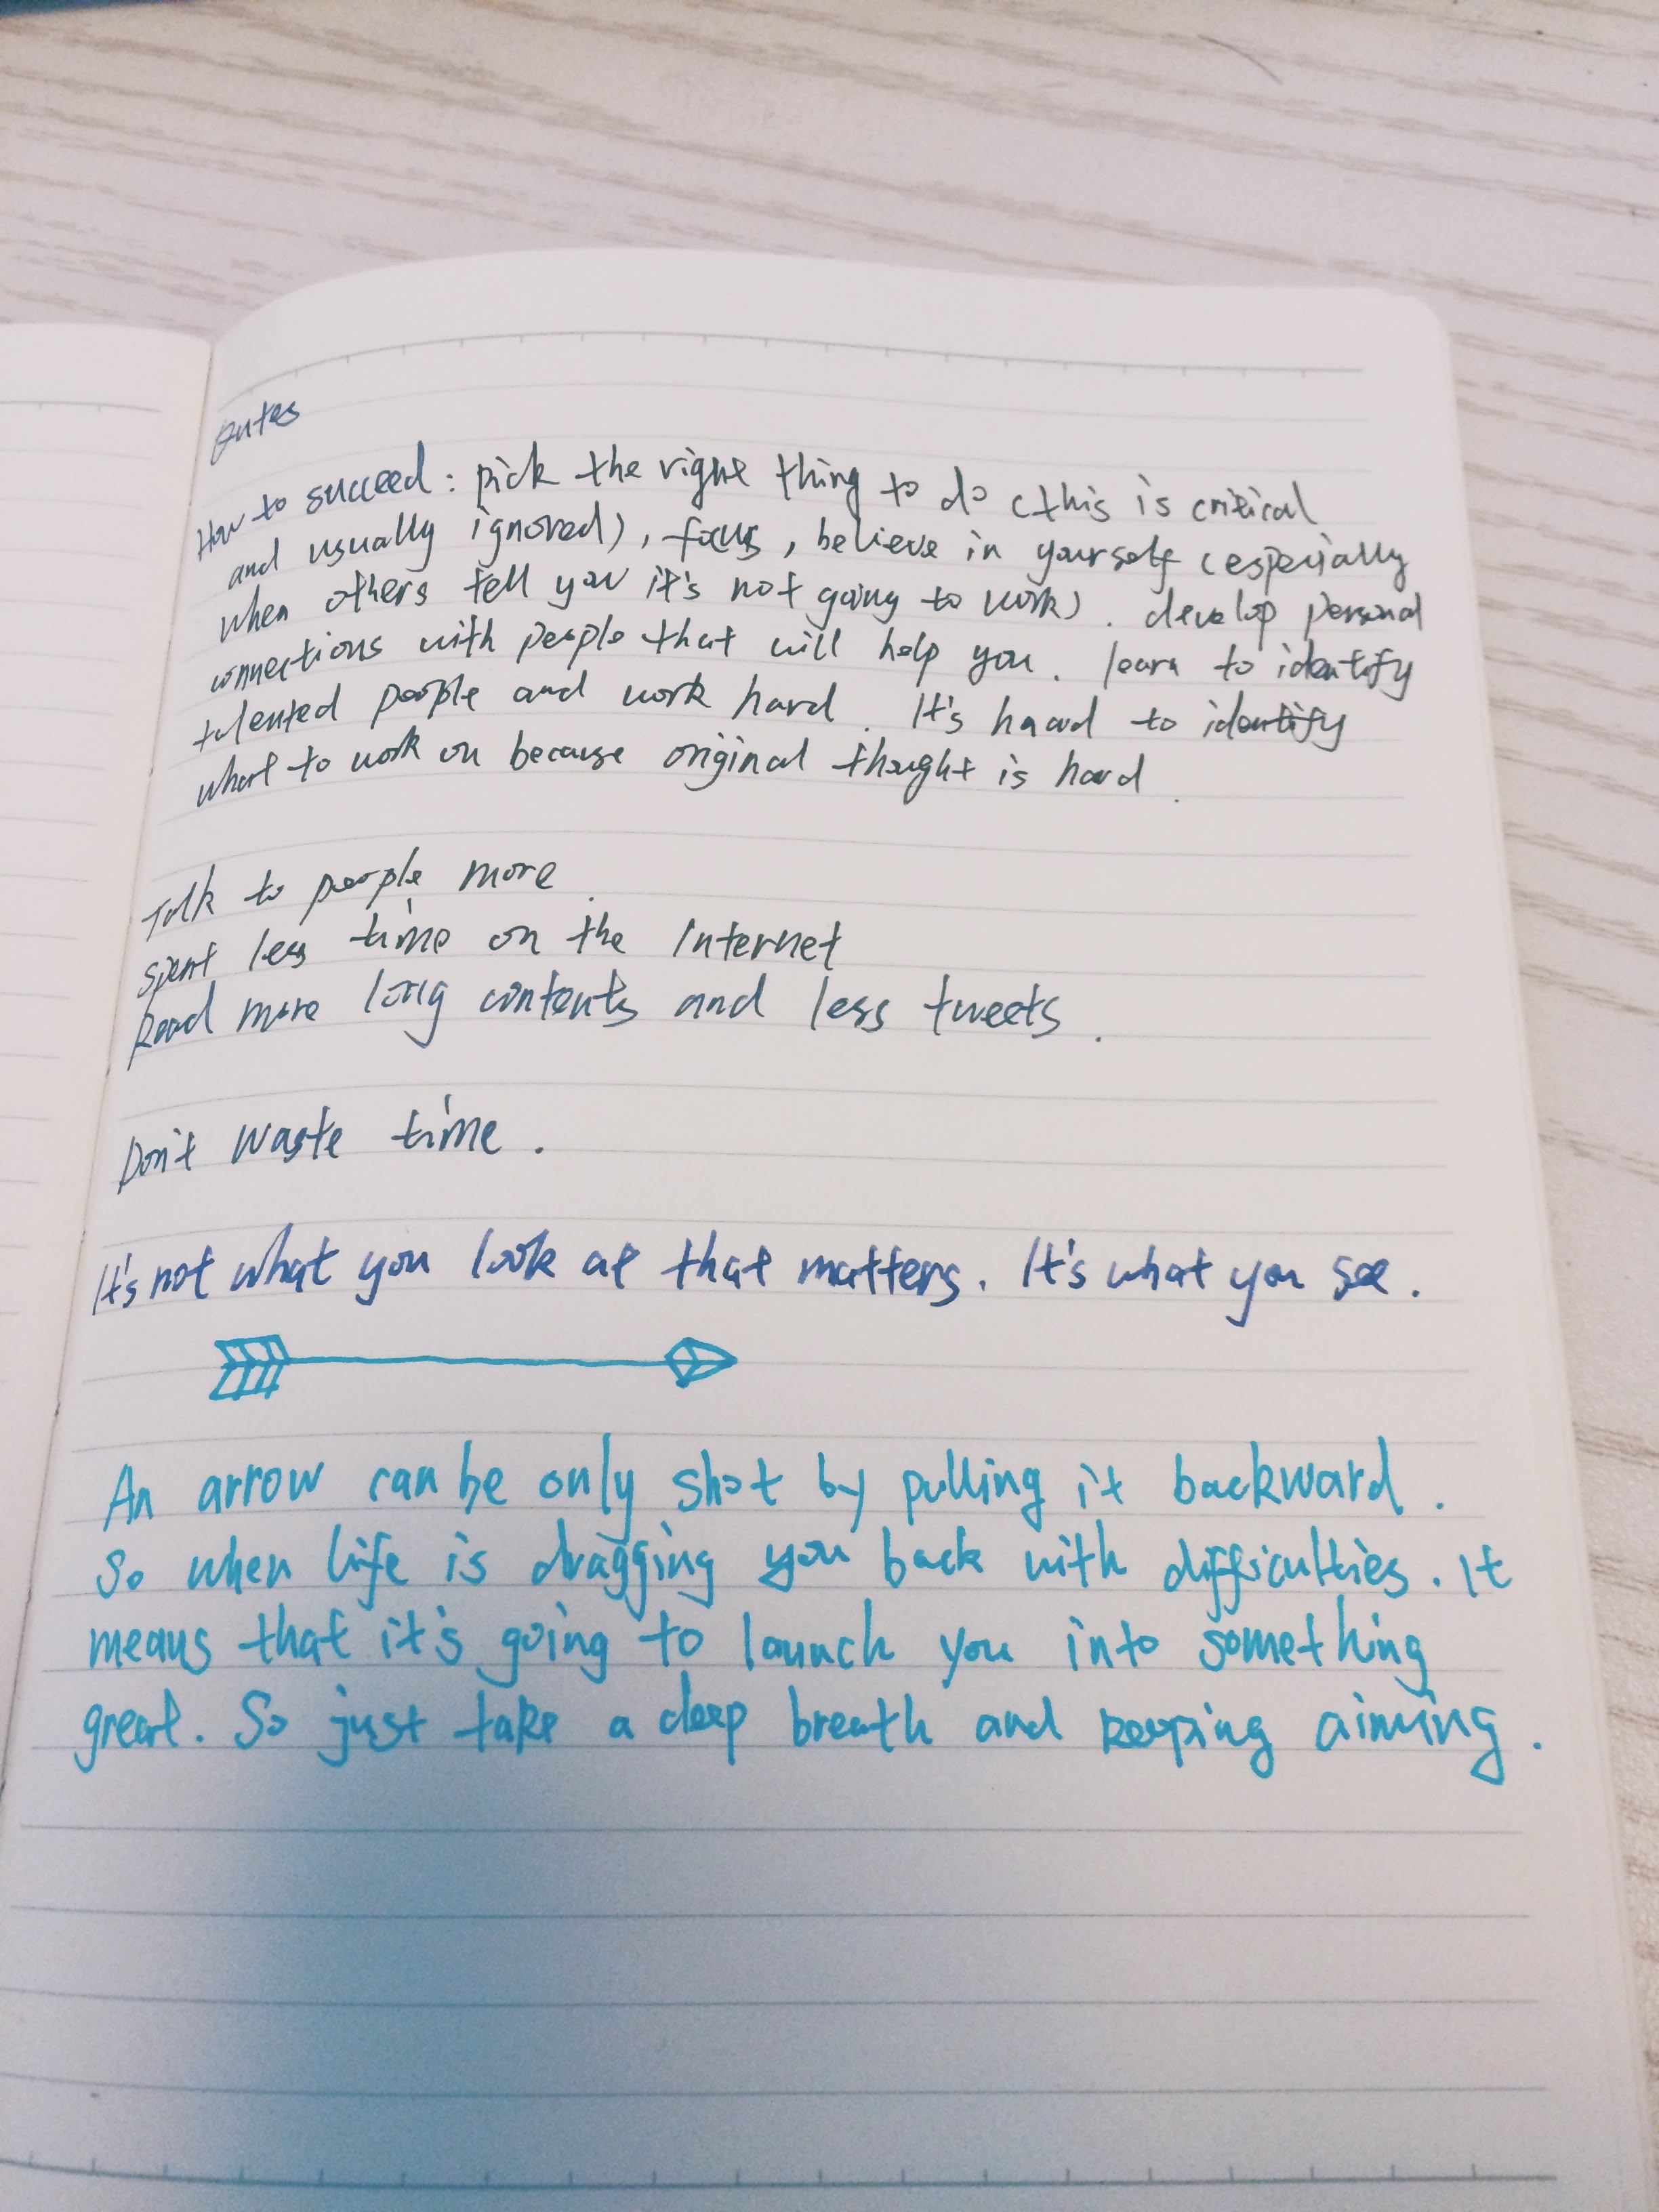 Qutes
How to succeed: pick the right thing to do (this is critical
and usually ignored), focus, believe in yourself (especially
when others tell you it's not going to work). develop personal
connections with people that will help you. learn to identify
talented people and work hard. It's haard to identify
what to work on because original thought is hard.
Talk to people more.
spent less time on the Internet
Read more long contents and less tweets.
Don't waste time.
It's not what you look at that matters. It's what you see.
An arrow can be only shot by pulling it backward.
So when life is dragging you back with difficulties. It
means that it's going to launch you into something
great. So just take a deep breath and keeping aiming.